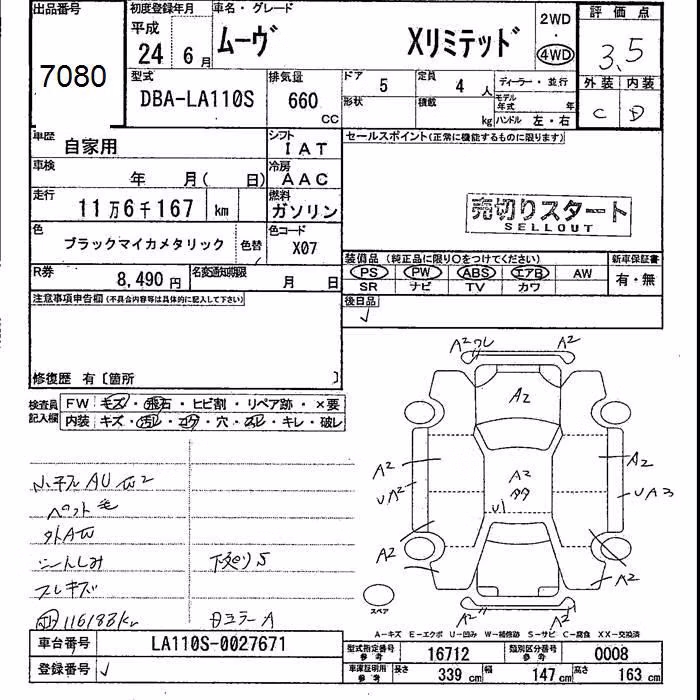 出品番号 初度登録年月 車名・グレード 2WD 評価点
7080 平成 24 6月 ムーヴ Xリミテッド ・ 4WD 3.5
型式 DBA-LA110S 排気量 660 CC ドア 5 定員 4 人 ディーラー・並行 外装 内装
形状 積載 kg モデル年式 年 ハンドル 左・右 C D
車歴 自家用 シフト IAT セールスポイント(正常に機能するものに限ります)
車検 年 月( 日) 冷房 AAC
走行 11万6千167 km 燃料 ガソリン 売切りスタート
SELLOUT
色 ブラックマイカメタリック 色替 色コード X07
装備品(純正品に限り○をつけてください) 新車保証書
R券 8,490円 名変通知期限 月 日 PS PW ABS エアB AW 有・無
SR ナビ TV カワ
注意事項申告欄(不具合内容等は具体的に記入して下さい) 後日品
修復歴 有〔箇所 〕
検査員記入欄 FW キズ・飛石・ヒビ割・リペア跡・×要
内装 キズ・汚レ・コゲ・穴・スレ・キレ・破レ
A2 ワレ A2
A2
A2 A2 A2
UA2 U1 UA3
A2 A2
小キズAUW2
ペット毛
外AW
シートしみ
スレキズ 下廻りS
116188km 日ミラーA
A2 A2
スペア
A-キズ E-エクボ U-凹み W-補修跡 S-サビ C-腐食 XX-交換済
車台番号 LA110S-0027671 型式指定番号 参考 16712 類別区分番号 参考 0008
登録番号 車庫証明用 参考 長さ 339 cm 幅 147 cm 高さ 163 cm